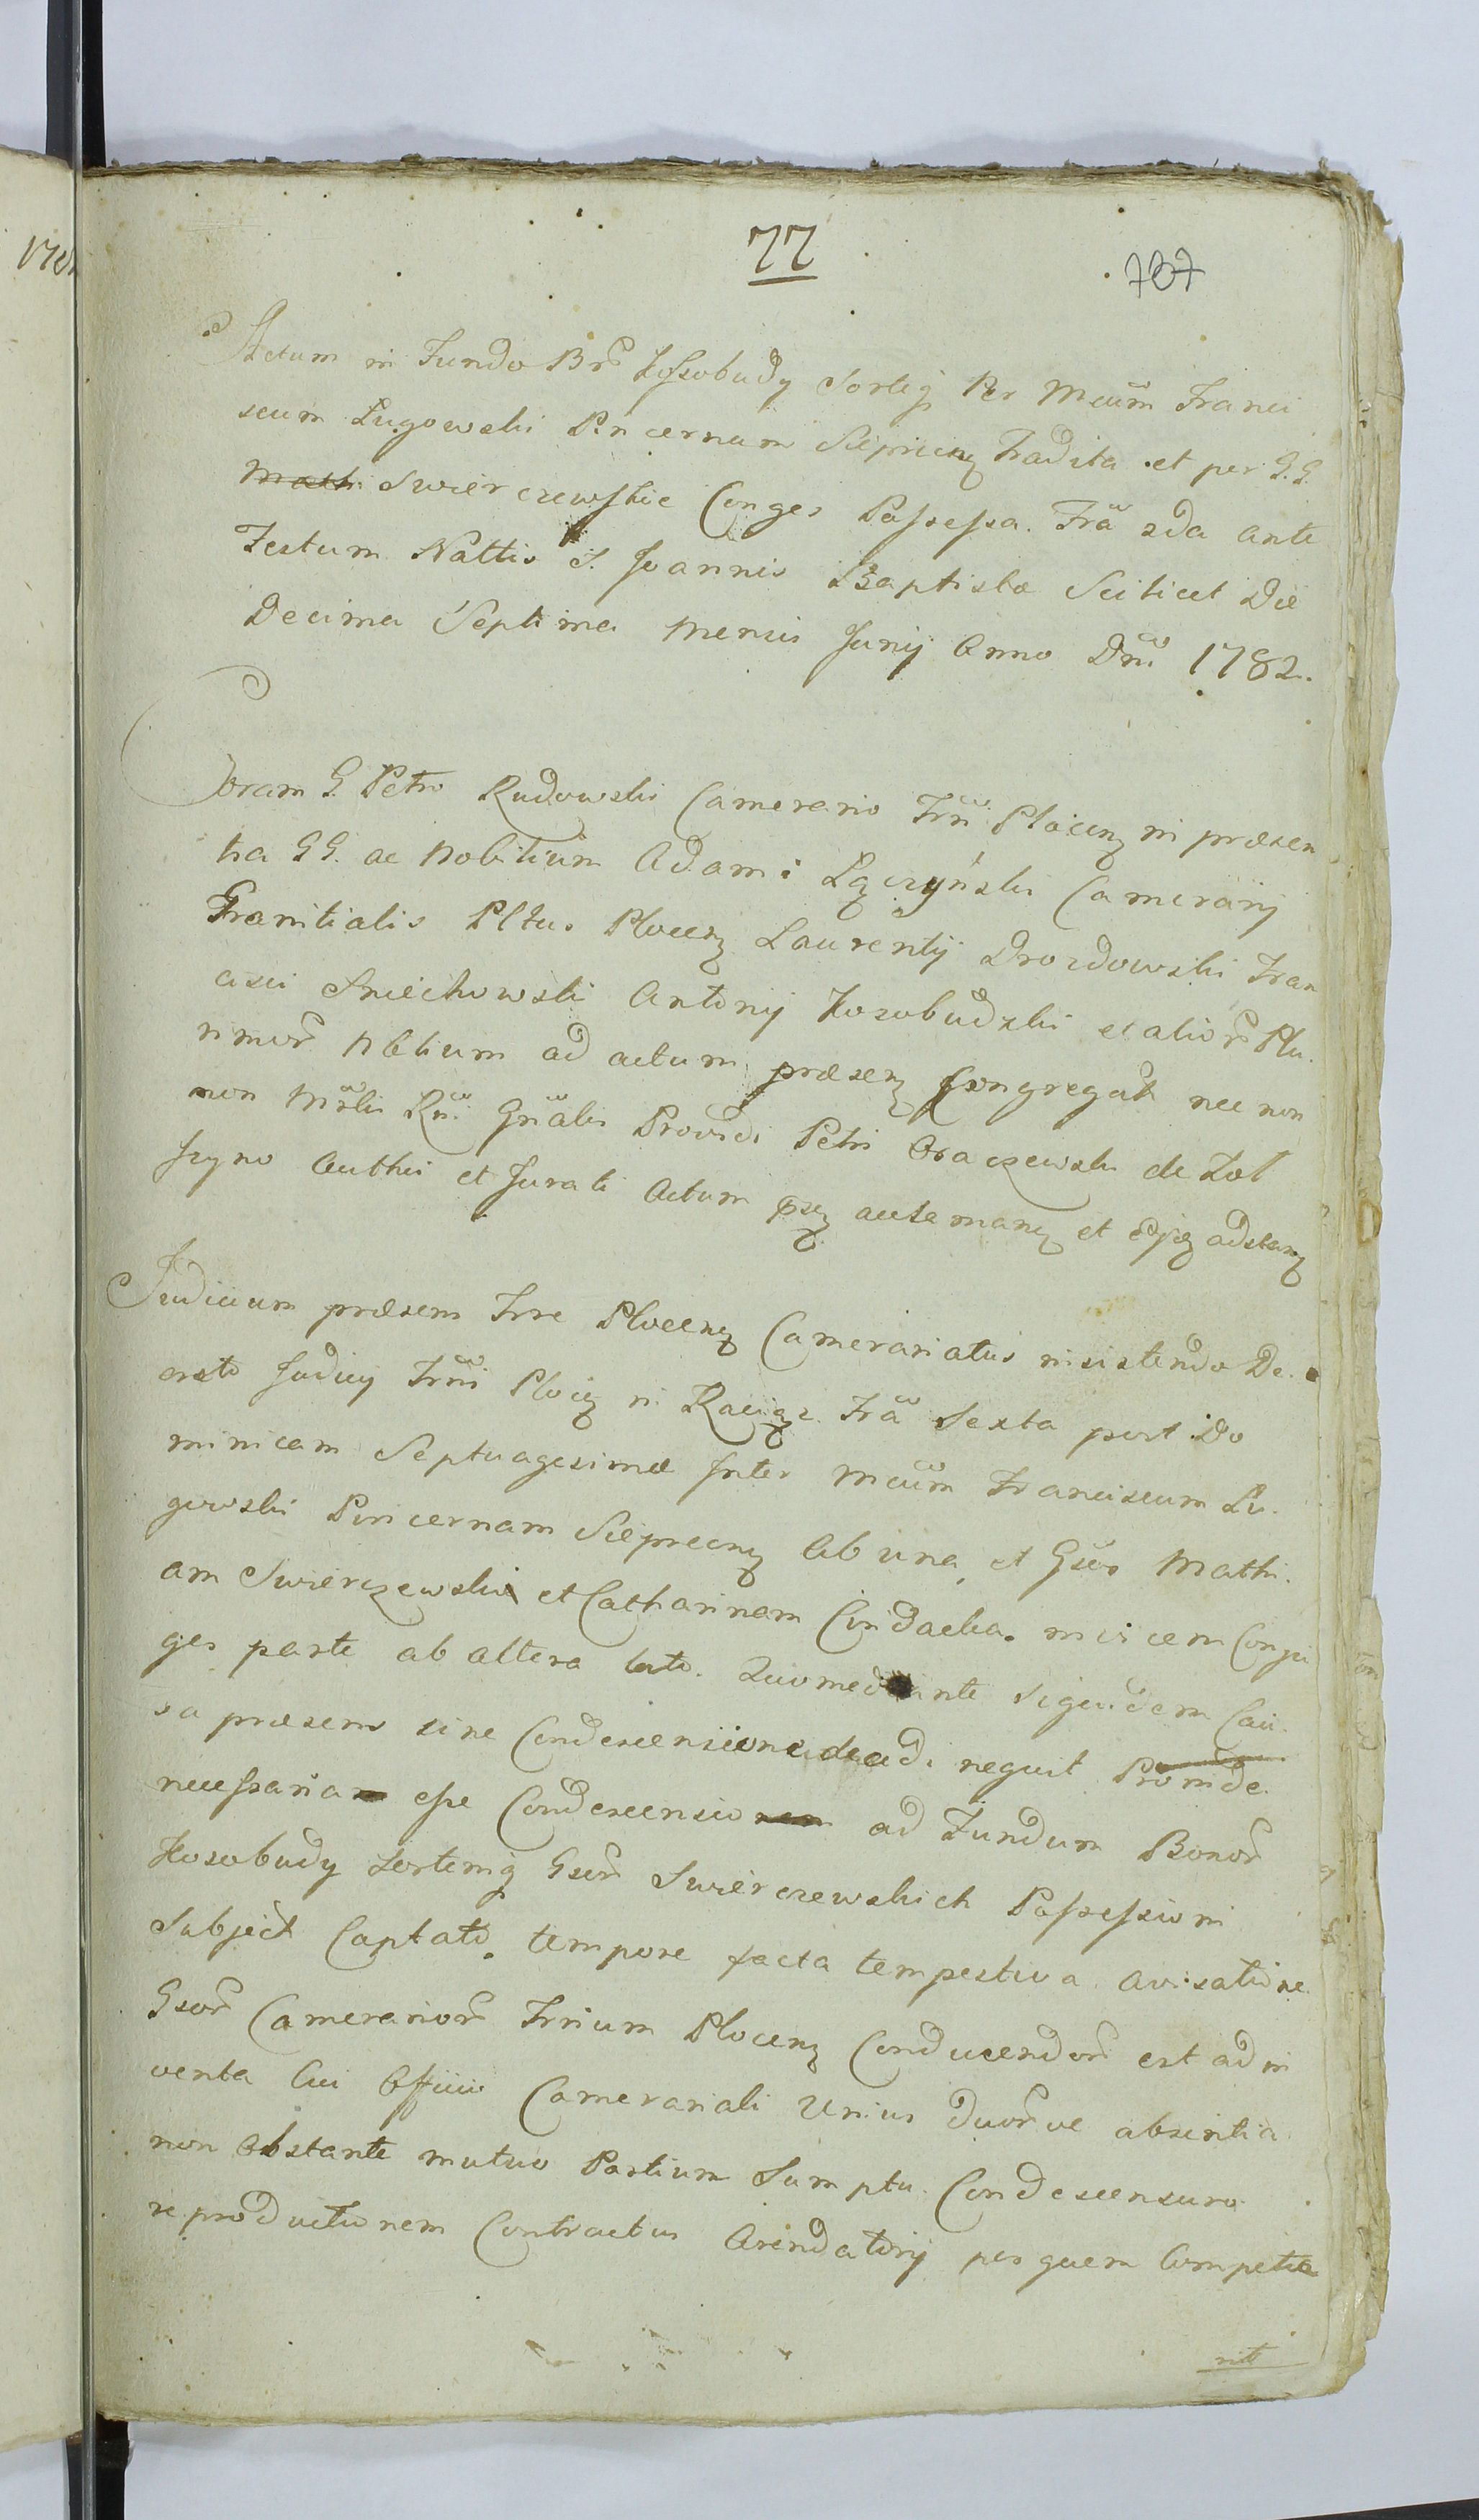 1781
77
707
Actum in Fundo Brõ Kossobudy Sortisq Per Mcum Franci
scum Lugowski Pincernam Sieprcensz Tradita et per G.G.
Math. Swierczewskie Conges Possessa. Fria 2da ante
Festum Nattis S. Joannis Baptistæ Scilicet Die
Decima Septima Mensis Junij Anno Dni 1782.
Coram G. Petro Rudowski Camerario Trri Plocensz in præsen
tia GG. ac Nobilium Adami Łączyński Camerarij
Franitialis Pltus Plocensz Laurentij Drozdowski Fran
cisci Sniechowski Antonij Kosobudzki et aliorõ Plu
rimorõ Nblium ad actum præsensz Congregat nec non
non Mrli Rni Gnalis Providi Petri Oraczewski de
szyno Authci et Jurati Actum præsz actemansz et adstansz
Judicium præsens Trre Plocensz Camerariatus insistendo De
creto Judicij Trri Plocensz in Raciąz Fria Sexta post Do
minicam Septuagesimæ Inter Mcum Franciscum Lu
gowski Pincernam Sieprcensz Ab una, et Gsos Mathi
am Swierczewski et Catharinam Cindacka invicem Conju
ges parte ab altera lato. Quo mediante siquidem Cau
sa præsens sine Condescensione dijudicadi nequit Proinde
necessaria esse Condescensio ad Fundum Bonorõ
Kosobudy Sortemq Gsorõ Swierczewskich Possessioni
Subject Captato tempore facta tempestiva avisatione
Gsorõ Camerariorõ Trrium Plocensz Conducendorõ est ad in
venta Cui Officio Camerariali Unius duorõve absentia
non Obstante mutuo Partium Sumptu Condescensuro
reproductionem Contractus Arendatorij per quem Competie
rit